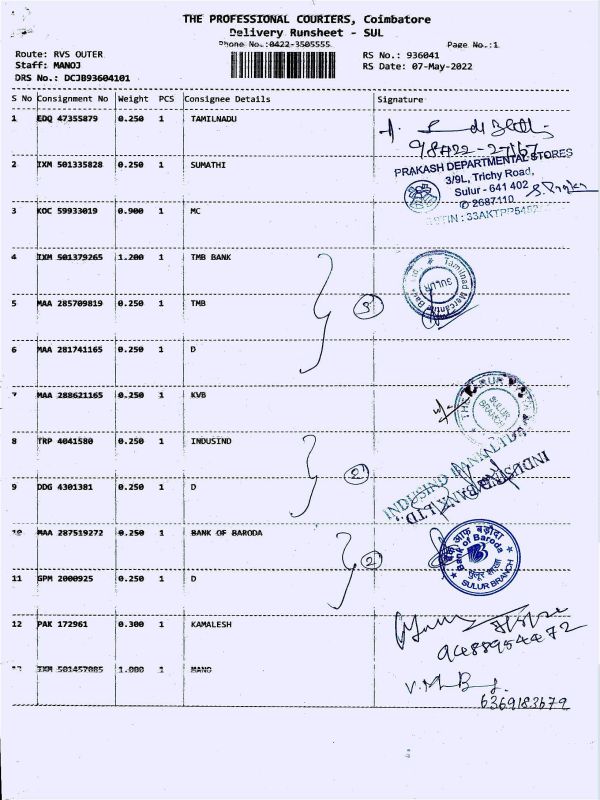 THE PROFESSIONAL COURIERS, Coimbatore
Delivery Runsheet - SUL
Phone No.:0422-3505555
Page No.:1
Route: RVS OUTER
RS No.: 936041
Staff: MANOJ
RS Date: 07-May-2022
DRS No.: DCJB93604101
S No Consignment No Weight PCS Consignee Details Signature
1 EDQ 47355879 0.250 1 TAMILNADU
2 IXM 501335828 0.250 1 SUMATHI
PRAKASH DEPARTMENTAL STORES
3/9L, Trichy Road,
Sulur - 641 402
✆ 2687110
3 KOC 59933019 0.900 1 MC
4 IXM 501379265 1.200 1 TMB BANK
Tamilnad Mercantile Bank Ltd.
SULUR
5 MAA 285709819 0.250 1 TMB
3
6 MAA 281741165 0.250 1 D
7 MAA 288621165 0.250 1 KVB
SULUR
BRANCH
8 TRP 4041580 0.250 1 INDUSIND
INDUSIND BANK LTD.
INDUSIND BANK LTD.
2
9 DDG 4301381 0.250 1 D
10 MAA 287519272 0.250 1 BANK OF BARODA
बैंक ऑफ़ बड़ौदा
Bank of Baroda
SULUR BRANCH
2
11 GPM 2000925 0.250 1 D
12 PAK 172961 0.300 1 KAMALESH
9488954472
13 IXM 501457085 1.000 1 MANO
6369183679